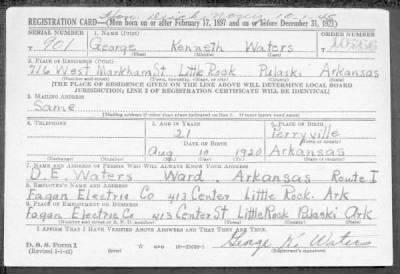 REGISTRATION CARD—(Men born on or after February 17, 1897 and on or before December 31, 1921)
SERIAL NUMBER 1. NAME (Print) ORDER NUMBER
T 901 George Kenneth Waters
(First) (Middle) (Last)
2. PLACE OF RESIDENCE (Print)
716 West Markham St. Little Rock Pulaski Arkansas
(Number and street) (Town, township, village, or city) (County) (State)
[THE PLACE OF RESIDENCE GIVEN ON THE LINE ABOVE WILL DETERMINE LOCAL BOARD
JURISDICTION; LINE 2 OF REGISTRATION CERTIFICATE WILL BE IDENTICAL]
3. MAILING ADDRESS
Same
[Mailing address if other than place indicated on line 2. If same insert word same]
4. TELEPHONE 5. AGE IN YEARS 6. PLACE OF BIRTH
21 Perryville
DATE OF BIRTH (Town or county)
Aug 10 1920 Arkansas
(Exchange) (Number) (Mo.) (Day) (Yr.) (State or country)
7. NAME AND ADDRESS OF PERSON WHO WILL ALWAYS KNOW YOUR ADDRESS
D. E. Waters Ward, Arkansas Route 1
8. EMPLOYER'S NAME AND ADDRESS
Fagan Electric Co 413 Center Little Rock. Ark
9. PLACE OF EMPLOYMENT OR BUSINESS
Fagan Electric Co 413 Center St. Little Rock Pulaski Ark
(Number and street or R. F. D. number) (Town) (County) (State)
I AFFIRM THAT I HAVE VERIFIED ABOVE ANSWERS AND THAT THEY ARE TRUE.
D. S. S. Form 1
(Revised 1-1-42) George K. Waters
(Registrant's signature)